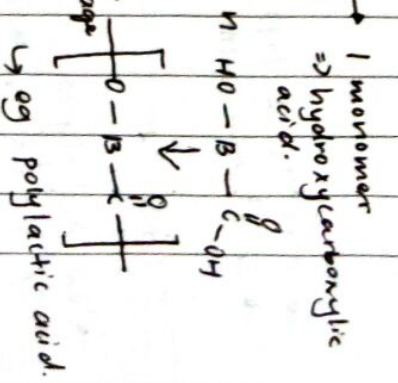 1 monomer
=> hydroxycarboxylic
acid.
n HO - B - C - OH
O
↓
[ O - B - C ]
O
↳ eg polylactic acid.